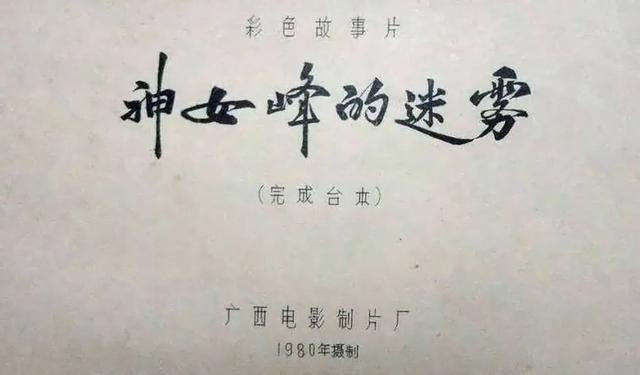 彩色故事片
神女峰的迷雾
(完成台本)
广西电影制片厂
1980年摄制